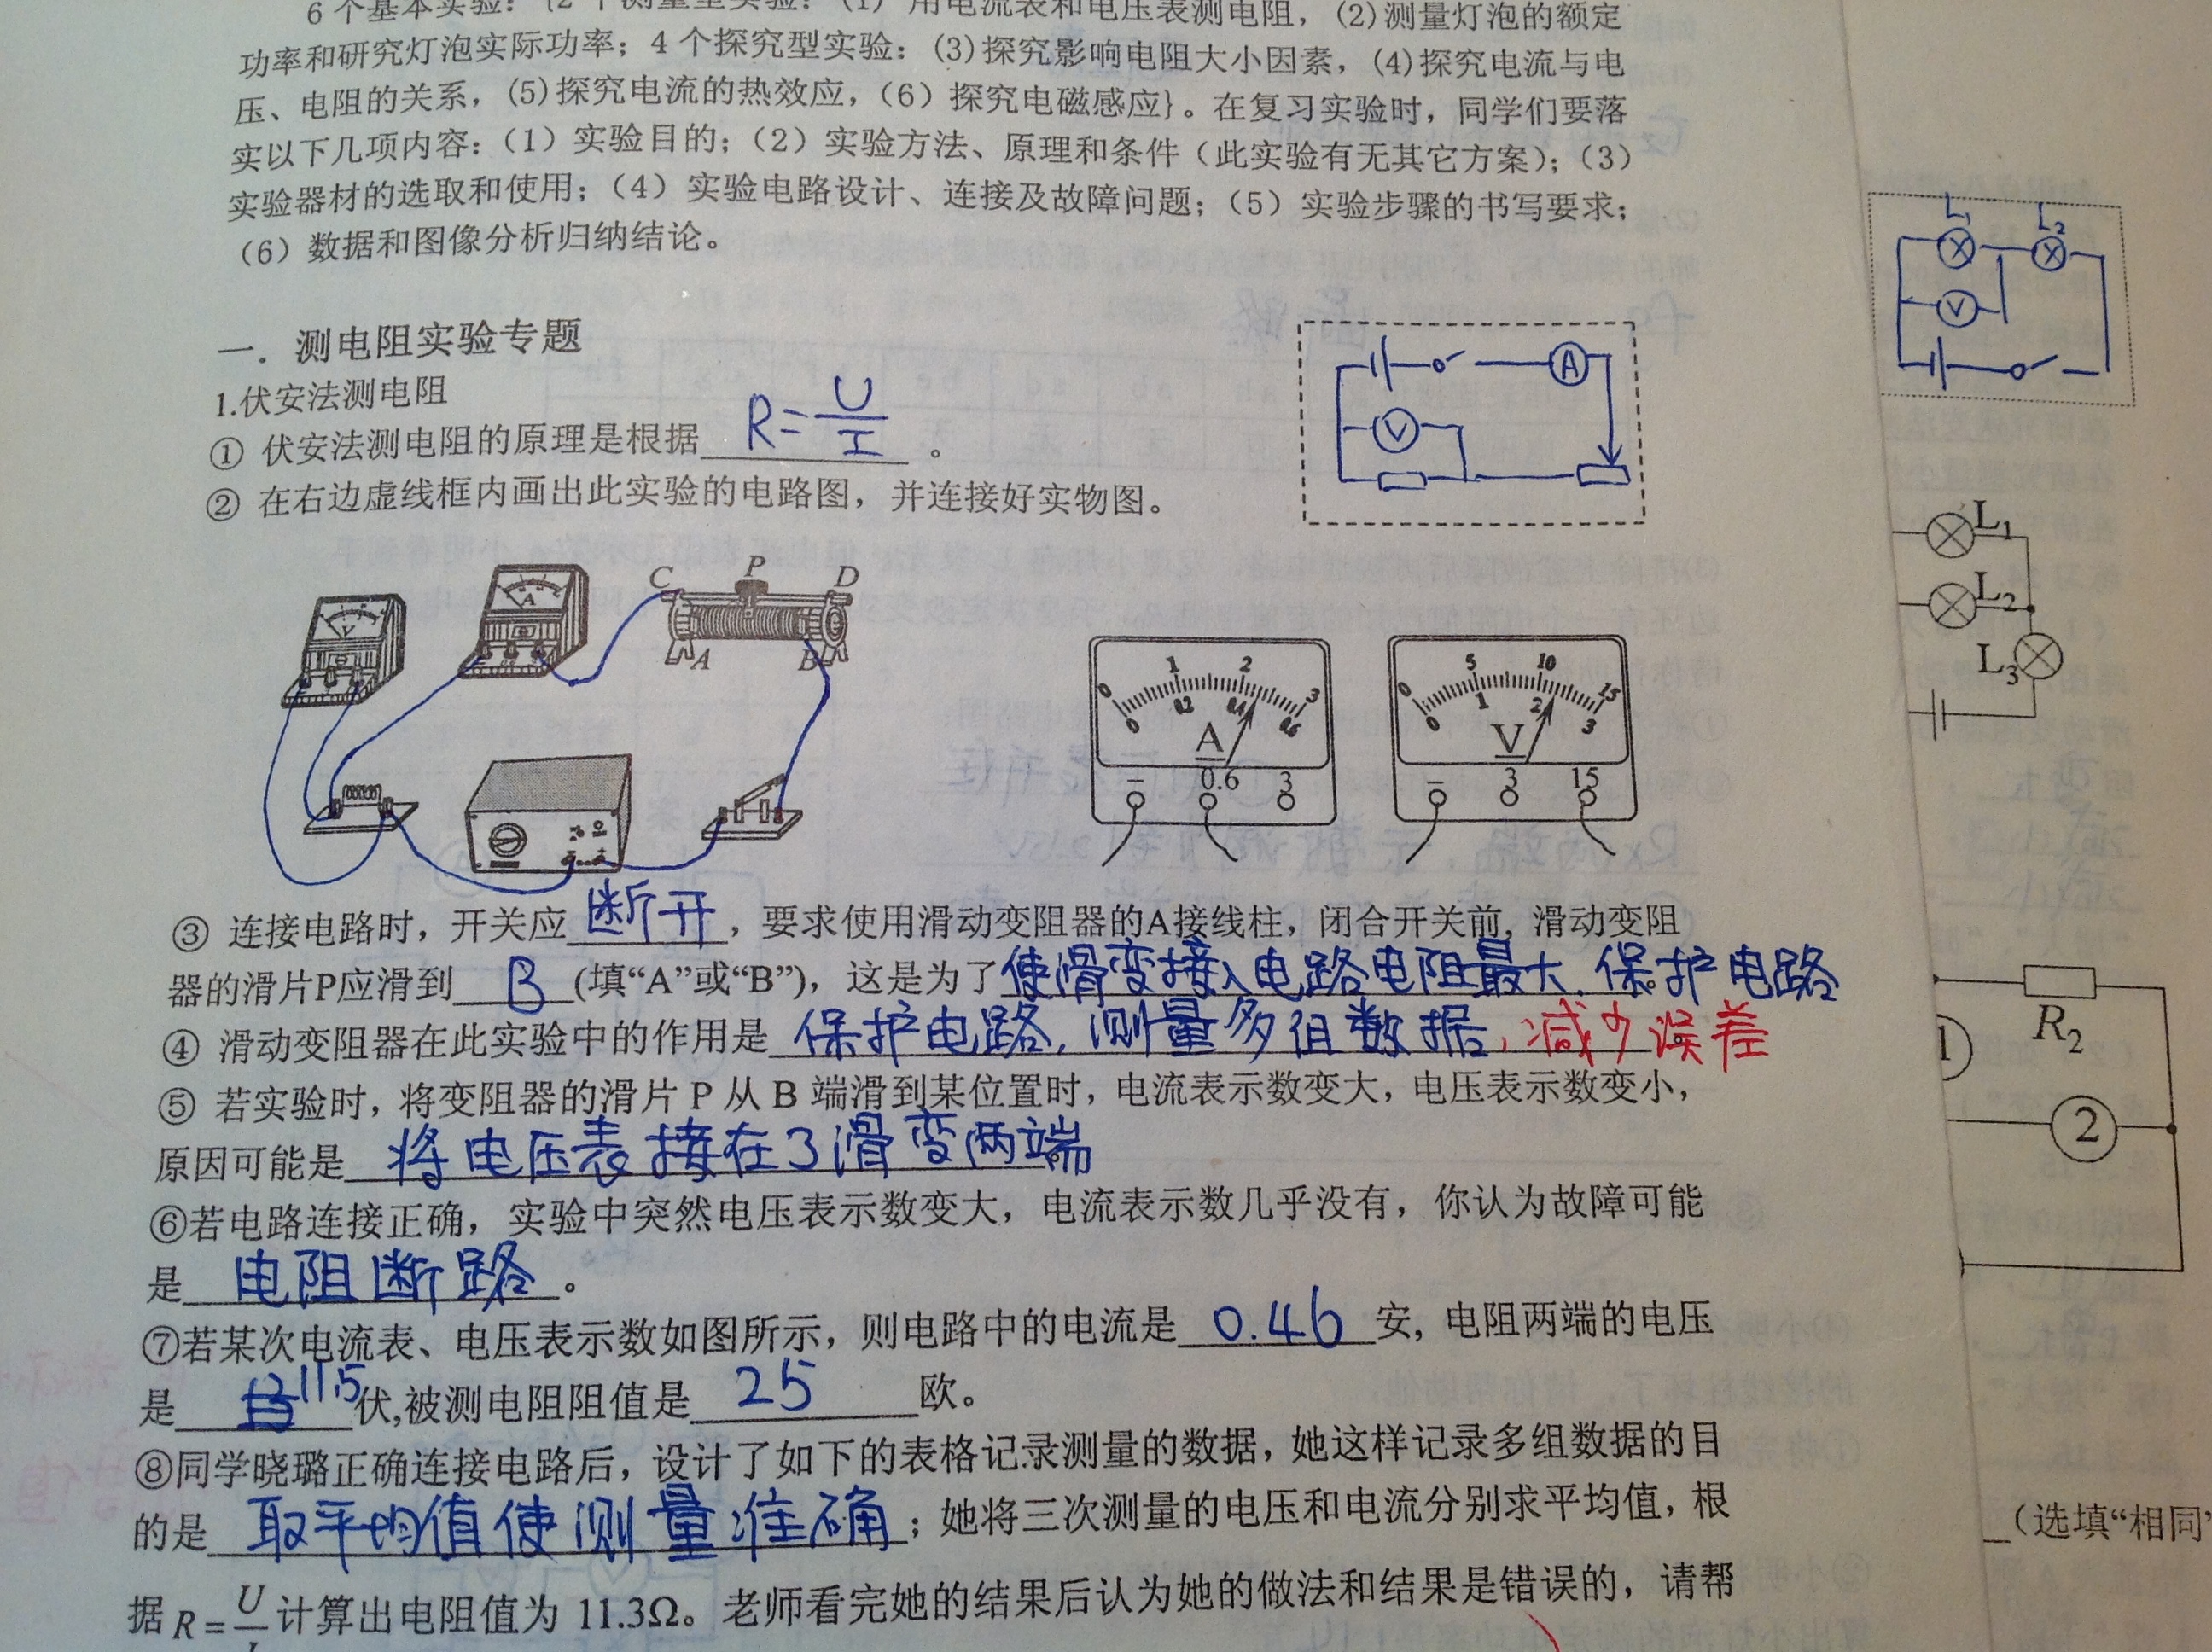 6个基本实验：{2个测量型实验：(1) 用电流表和电压表测电阻，(2)测量灯泡的额定
功率和研究灯泡实际功率；4个探究型实验：(3)探究影响电阻大小因素，(4)探究电流与电
压、电阻的关系，(5)探究电流的热效应，(6) 探究电磁感应}。在复习实验时，同学们要落
实以下几项内容：(1) 实验目的；(2) 实验方法、原理和条件（此实验有无其它方案）；(3)
实验器材的选取和使用；(4) 实验电路设计、连接及故障问题；(5) 实验步骤的书写要求；
(6) 数据和图像分析归纳结论。
一．测电阻实验专题
1.伏安法测电阻
① 伏安法测电阻的原理是根据 R=U/I 。
② 在右边虚线框内画出此实验的电路图，并连接好实物图。
A
V
V
A
C P D
A B
0 1 2 3
0 0.2 0.4 0.6
A
− 0.6 3
0 5 10 15
0 1 2 3
V
− 3 15
③ 连接电路时，开关应断开，要求使用滑动变阻器的A接线柱，闭合开关前，滑动变阻
器的滑片P应滑到 B (填“A”或“B”)，这是为了使滑变接入电路电阻最大.保护电路
④ 滑动变阻器在此实验中的作用是 保护电路，测量多组数据，减少误差
⑤ 若实验时，将变阻器的滑片 P 从 B 端滑到某位置时，电流表示数变大，电压表示数变小，
原因可能是 将电压表接在了滑变两端
⑥若电路连接正确，实验中突然电压表示数变大，电流表示数几乎没有，你认为故障可能
是 电阻断路 。
⑦若某次电流表、电压表示数如图所示，则电路中的电流是 0.46 安，电阻两端的电压
是 11.5 伏,被测电阻阻值是 25 欧。
⑧同学晓璐正确连接电路后，设计了如下的表格记录测量的数据，她这样记录多组数据的目
的是 取平均值使测量准确；她将三次测量的电压和电流分别求平均值，根
据 R=U/I 计算出电阻值为 11.3Ω。老师看完她的结果后认为她的做法和结果是错误的，请帮
L₁ L₂
V
L₁
L₂
L₃
R₂
1
2
（选填“相同”